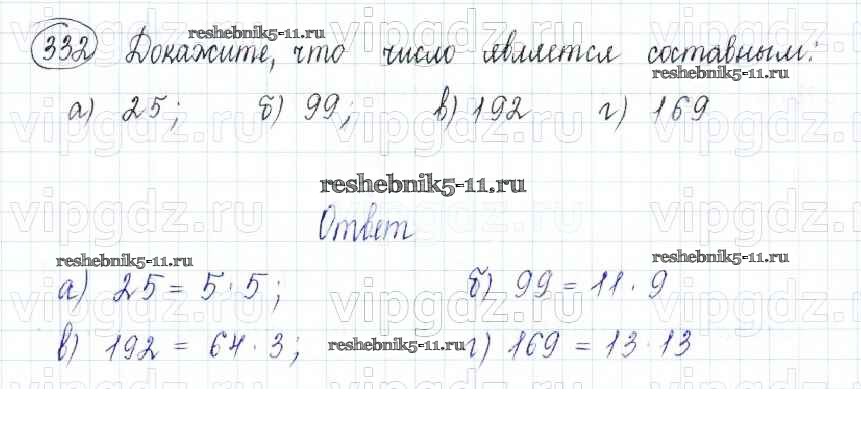 reshebnik5-11.ru
332 Докажите, что число является составным:
reshebnik5-11.ru
а) 25; б) 99; в) 192 г) 169
vipgdz.ru vipgdz.ru vipgdz.ru
reshebnik5-11.ru
vipgdz.ru vipgdz.ru vipgdz.ru
Ответ
reshebnik5-11.ru reshebnik5-11.ru
а) 25 = 5 · 5; б) 99 = 11 · 9
vipgdz.ru vipgdz.ru vipgdz.ru
в) 192 = 64 · 3; reshebnik5-11.ru г) 169 = 13 · 13